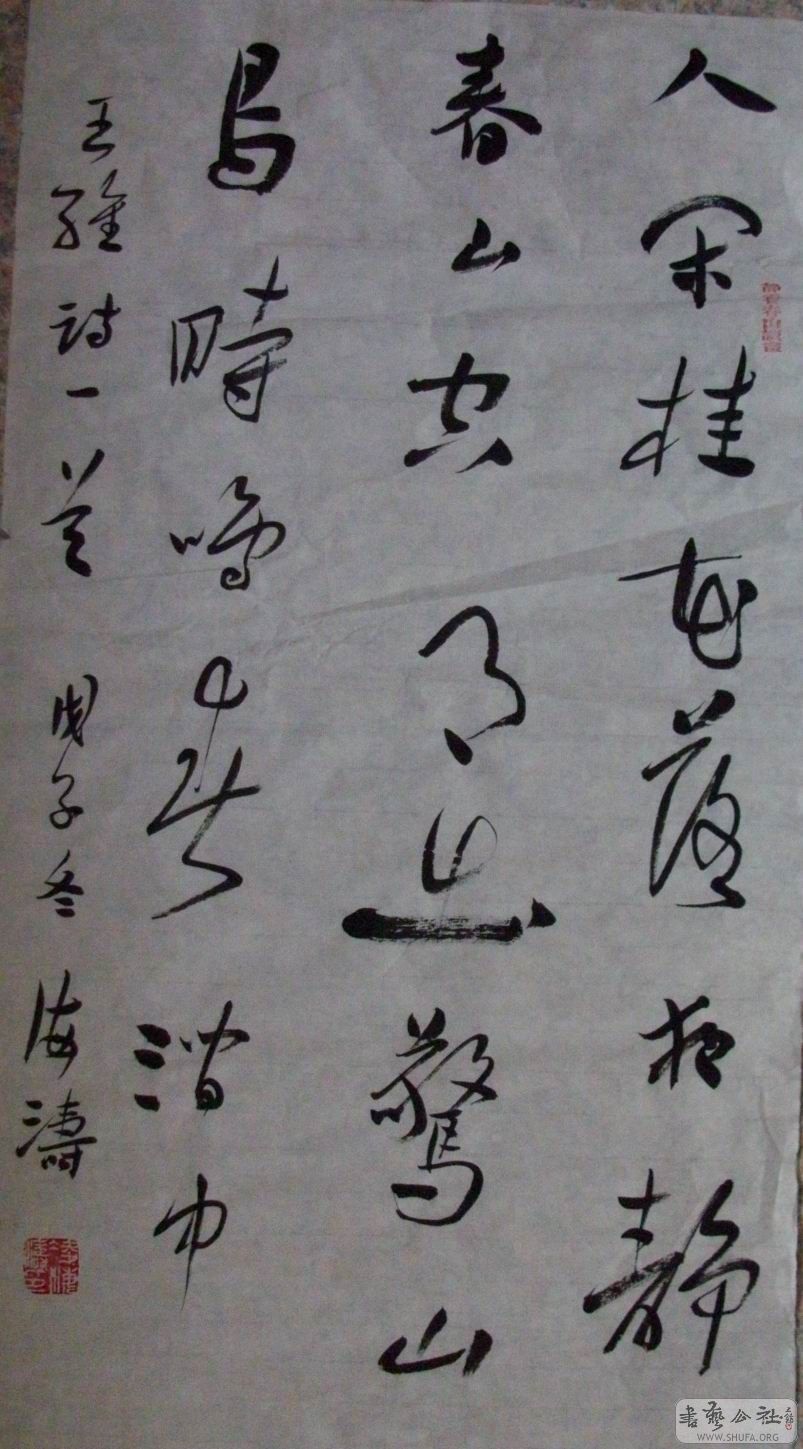 人闲桂花落夜静
春山空月出驚山
鳥時鳴春澗中
王維詩一首 戊子冬 海濤
書藝公社
WWW.SHUFA.ORG